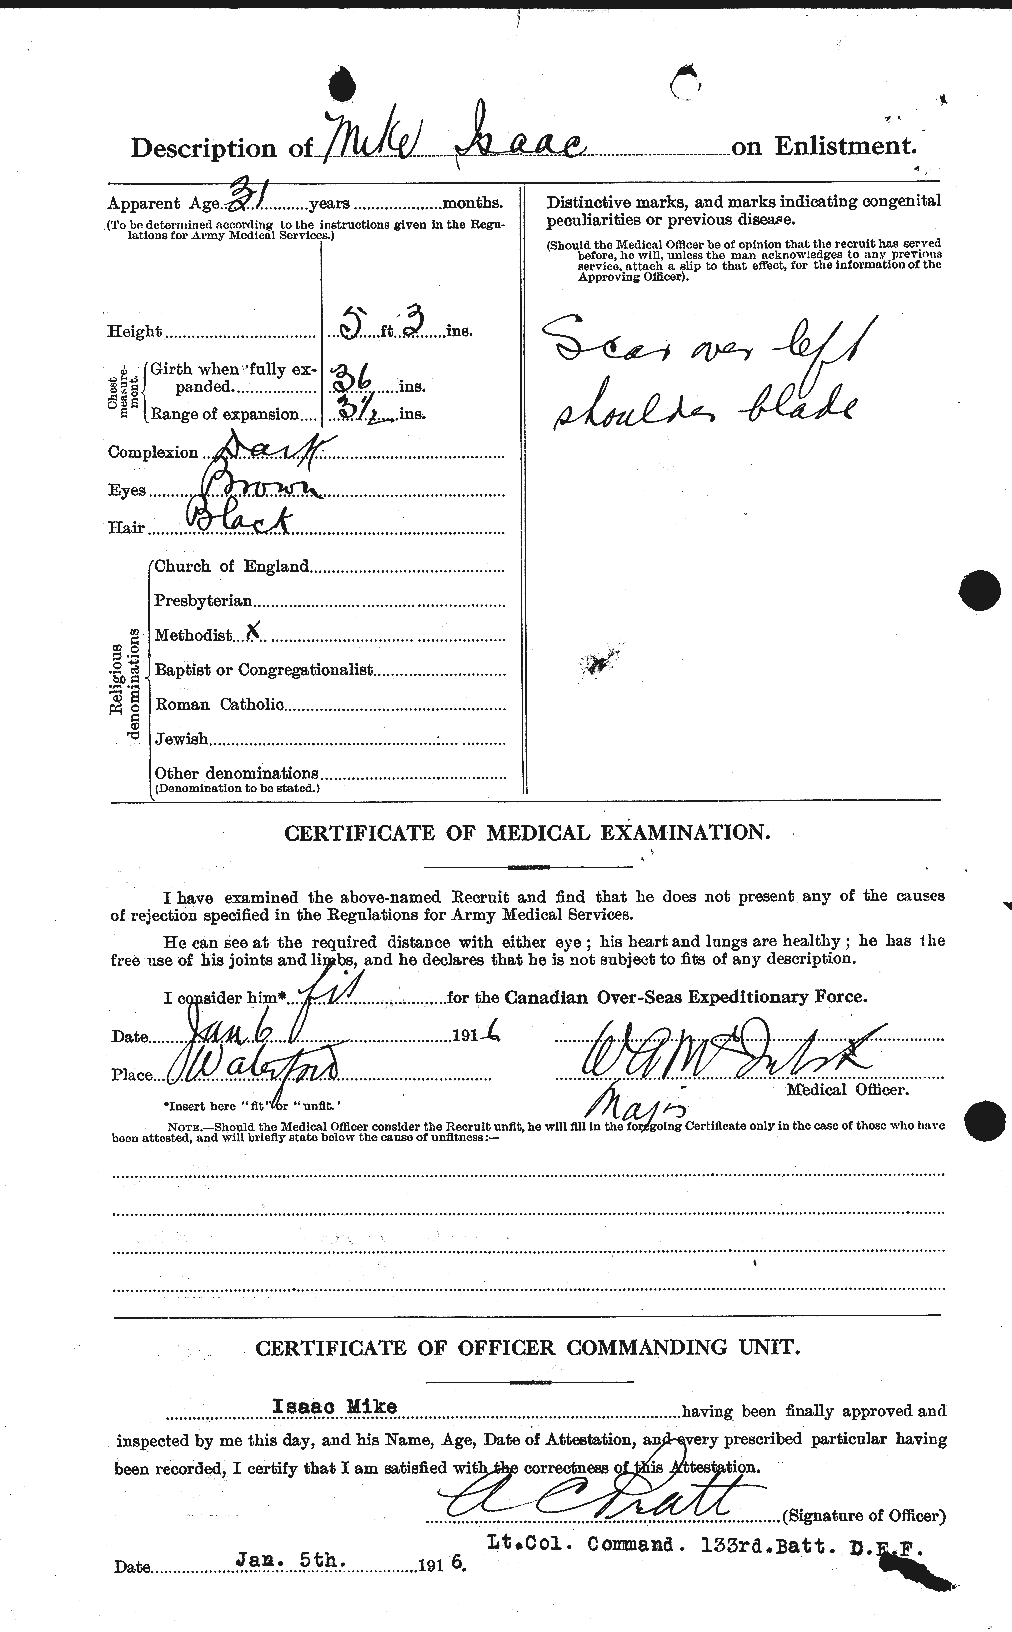 Description of Mike Isaac on Enlistment.
Apparent Age 31 years months.
(To be determined according to the instructions given in the Regulations for Army Medical Services.)
Height 5 ft 3 ins.
Chest measurement
Girth when fully expanded 36 ins.
Range of expansion 3 1/2 ins.
Complexion Dark
Eyes Brown
Hair Black
Religious denominations
Church of England
Presbyterian
Methodist X
Baptist or Congregationalist
Roman Catholic
Jewish
Other denominations
(Denomination to be stated.)
Distinctive marks, and marks indicating congenital
peculiarities or previous disease.
(Should the Medical Officer be of opinion that the recruit has served
before, he will, unless the man acknowledges to any previous
service, attach a slip to that effect, for the information of the
Approving Officer).
Scar over left
shoulder blade
CERTIFICATE OF MEDICAL EXAMINATION.
I have examined the above-named Recruit and find that he does not present any of the causes
of rejection specified in the Regulations for Army Medical Services.
He can see at the required distance with either eye; his heart and lungs are healthy; he has the
free use of his joints and limbs, and he declares that he is not subject to fits of any description.
I consider him* fit for the Canadian Over-Seas Expeditionary Force.
Date Jan 6 1916
Place Waterford
Medical Officer.
Major
*Insert here "fit" or "unfit."
NOTE.—Should the Medical Officer consider the Recruit unfit, he will fill in the foregoing Certificate only in the case of those who have
been attested, and will briefly state below the cause of unfitness:—
CERTIFICATE OF OFFICER COMMANDING UNIT.
Isaac Mike having been finally approved and
inspected by me this day, and his Name, Age, Date of Attestation, and every prescribed particular having
been recorded, I certify that I am satisfied with the correctness of this Attestation.
A C Pratt (Signature of Officer)
Lt.Col. Command. 133rd.Batt. D.E.F.
Date Jan. 5th. 1916.